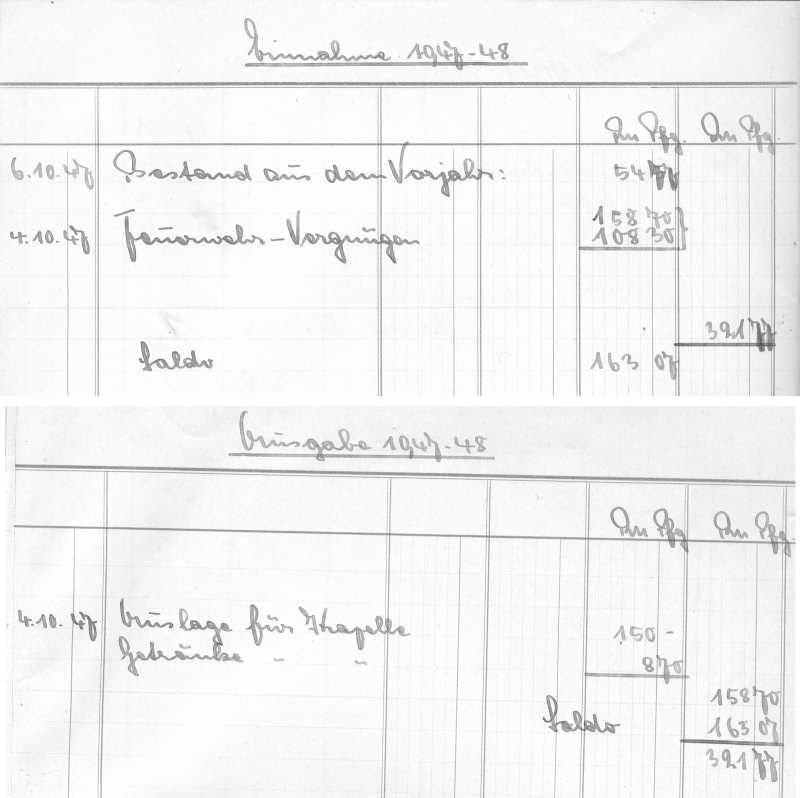 Einnahme 1947-48
Rm Pfg. Rm Pfg.
6.10.47 Bestand aus dem Vorjahr: 54 77
158 70
4.10.47 Feuerwehr-Vergnügen 108 30
321 77
Saldo 163 07
Ausgabe 1947-48
Rm Pfg Rm Pfg.
4.10.47 Auslage für Kapelle 150 -
Getränke " " 8 70
158 70
Saldo 163 07
321 77